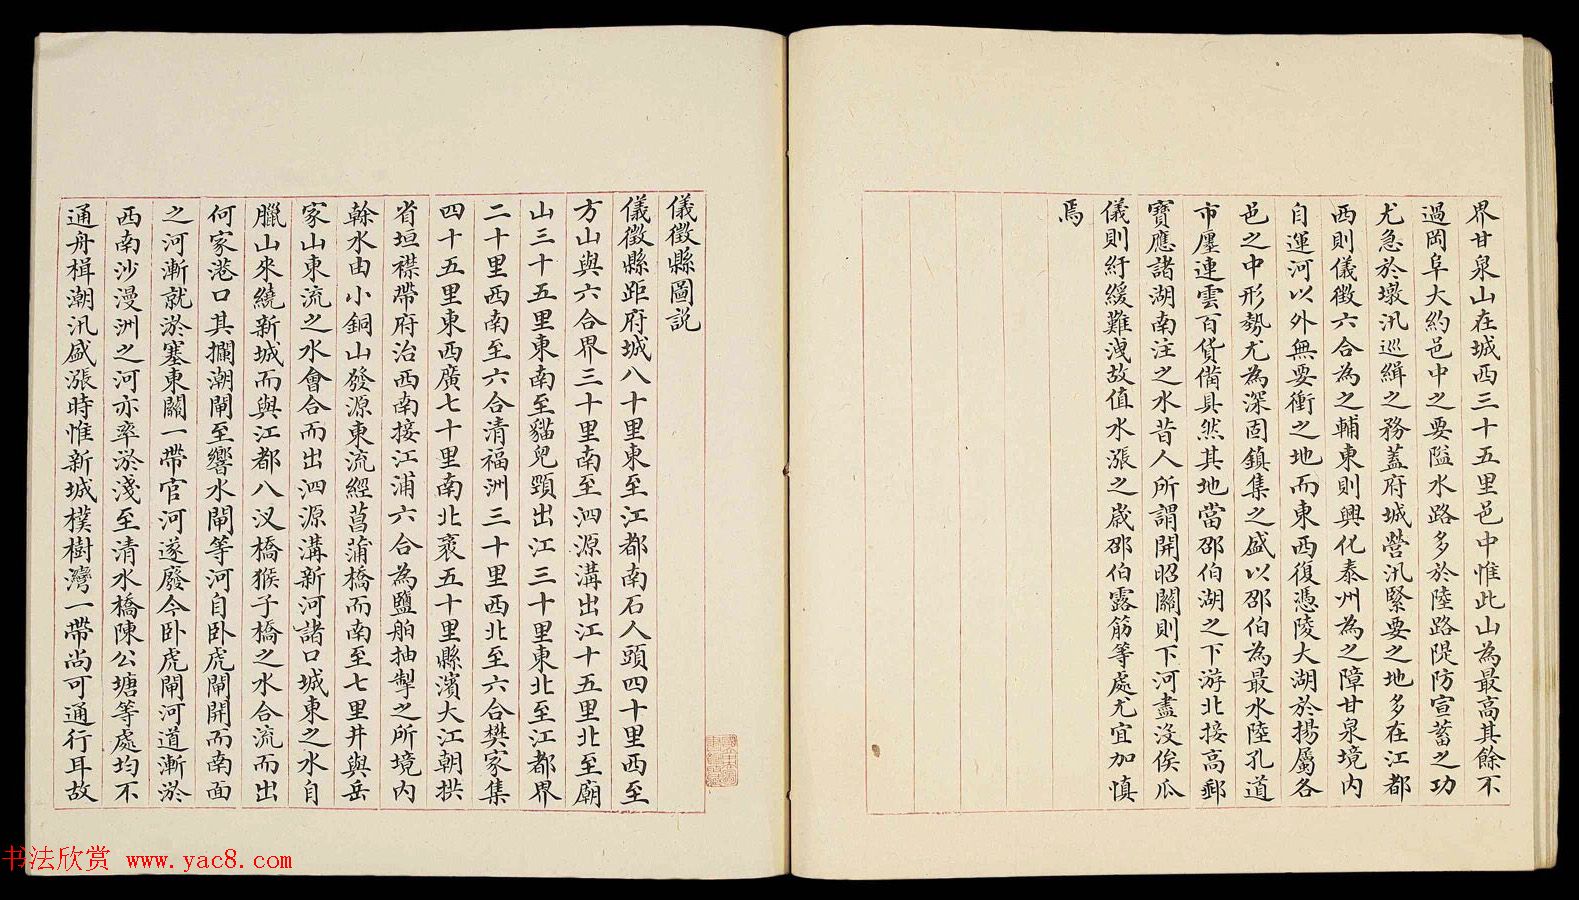 界甘泉山在城西三十五里邑中惟此山為最高其餘不
過岡阜大約邑中之要隘水路多於陸路隄防宣蓄之功
尤急於墩汛巡緝之務蓋府城營汛緊要之地多在江都
西則儀徵六合為之輔東則興化泰州為之障甘泉境內
自運河以外無要衝之地而東西復憑陵大湖於揚屬各
邑之中形勢尤為深固鎮集之盛以邵伯為最水陸孔道
市廛連雲百貨備具然其地當邵伯湖之下游北接高郵
寶應諸湖南注之水昔人所謂開昭關則下河盡沒俟瓜
儀則紆緩難洩故值水漲之歲邵伯露筋等處尤宜加慎
焉
儀徵縣圖說
儀徵縣距府城八十里東至江都南石人頭四十里西至
方山與六合界三十里南至泗源溝出江十五里北至廟
山三十五里東南至貓兒頸出江三十里東北至江都界
二十里西南至六合清福洲三十里西北至六合樊家集
四十五里東西廣七十里南北袤五十里縣濱大江朝拱
省垣襟帶府治西南接江浦六合為鹽舶抽掣之所境內
榦水由小銅山發源東流經菖蒲橋而南至七里井與岳
家山東流之水會合而出泗源溝新河諸口城東之水自
臘山來繞新城而與江都八汊橋猴子橋之水合流而出
何家港口其攔潮閘至響水閘等河自卧虎閘開而南面
之河漸就淤塞東關一帶官河遂廢今卧虎閘河道漸淤
西南沙漫洲之河亦率淤淺至清水橋陳公塘等處均不
通舟楫潮汛盛漲時惟新城樸樹灣一帶尚可通行耳故
书法欣赏 www.yac8.com